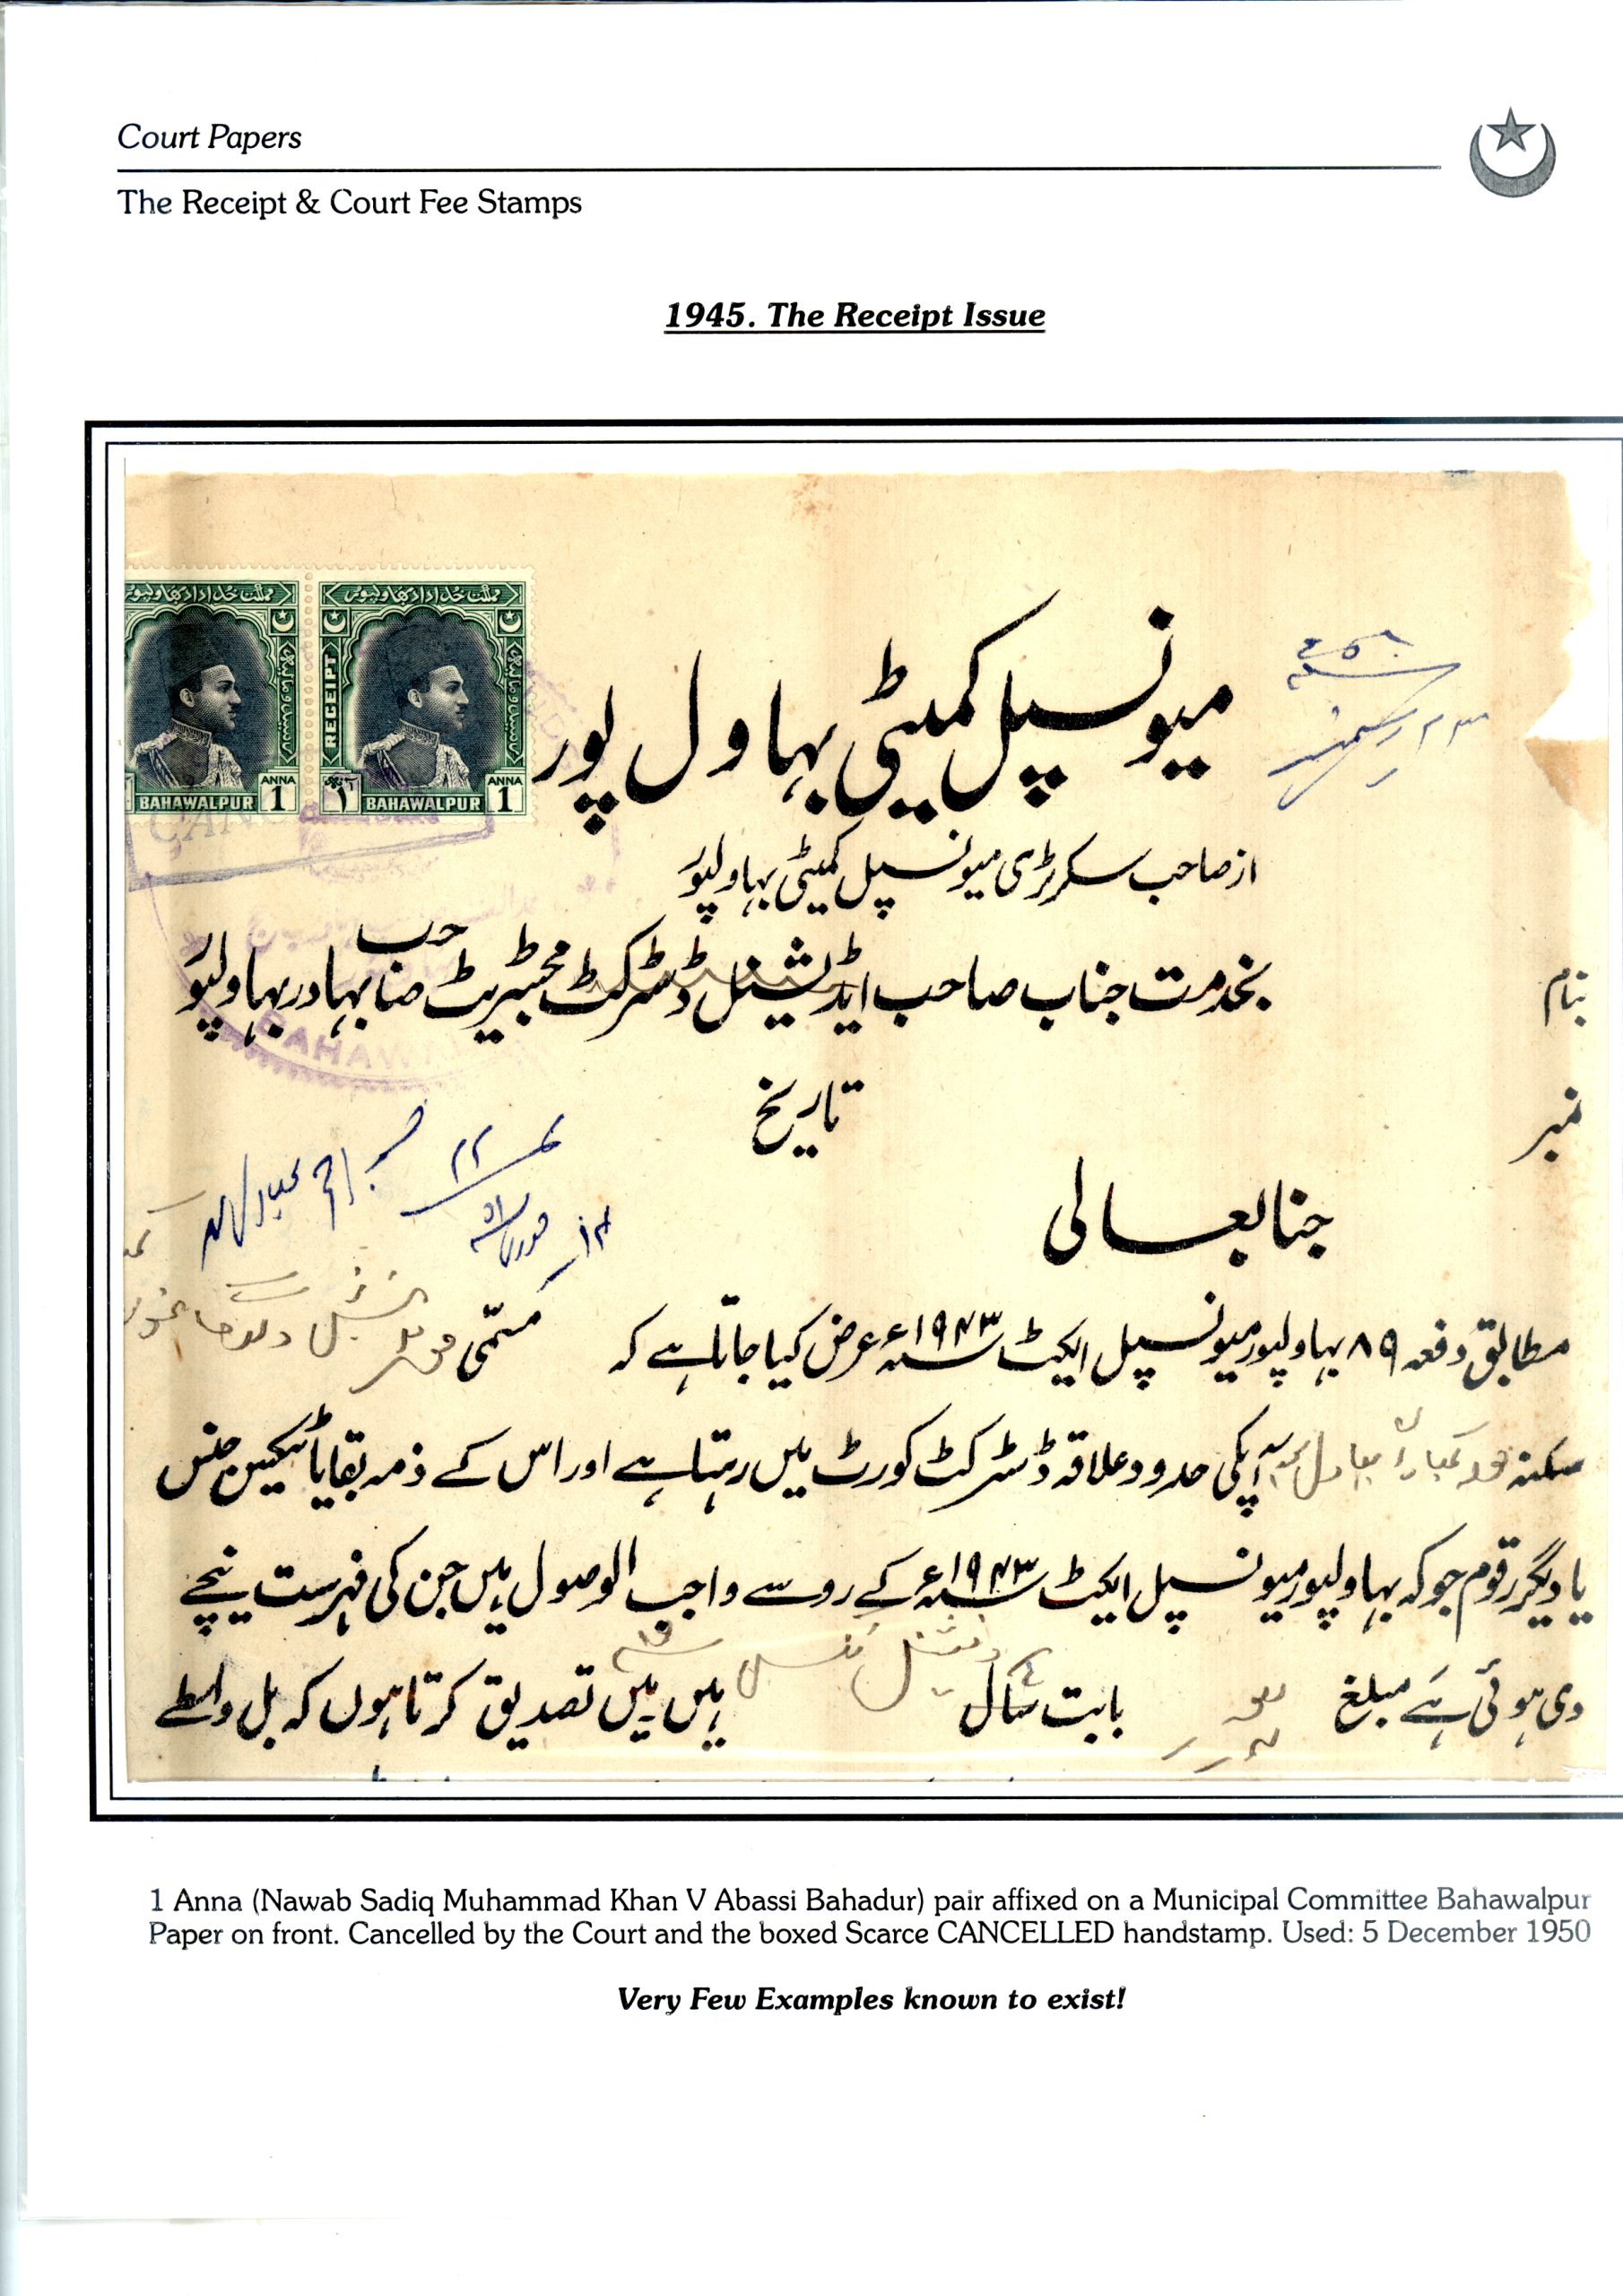 Court Papers
The Receipt & Court Fee Stamps
1945. The Receipt Issue
RECEIPT
ANNA
1
BAHAWALPUR
ANNA
1
BAHAWALPUR
میونسپل کمیٹی بہاول پور
از صاحب سکرٹری میونسپل کمیٹی بہاولپور
بخدمت جناب صاحب ایڈیشنل ڈسٹرکٹ مجسٹریٹ صاحب بہادر بہاولپور
بنام
تاریخ
نمبر
جنابعالی
مطابق دفعہ ۸۹ بہاولپور میونسپل ایکٹ سنہ ۱۹۴۳ء عرض کیا جاتا ہے کہ مسمّی
سکنہ آپکی حدود علاقہ ڈسٹرکٹ کورٹ میں رہتا ہے اور اس کے ذمہ بقایا ٹیکس جنس
یا دیگر رقوم جو کہ بہاولپور میونسپل ایکٹ سنہ ۱۹۴۳ء کے روسے واجب الوصول ہیں جن کی فہرست نیچے
دی ہوئی ہے مبلغ بابت سال ہیں میں تصدیق کرتا ہوں کہ بل واسطے
1 Anna (Nawab Sadiq Muhammad Khan V Abassi Bahadur) pair affixed on a Municipal Committee Bahawalpur
Paper on front. Cancelled by the Court and the boxed Scarce CANCELLED handstamp. Used: 5 December 1950
Very Few Examples known to exist!